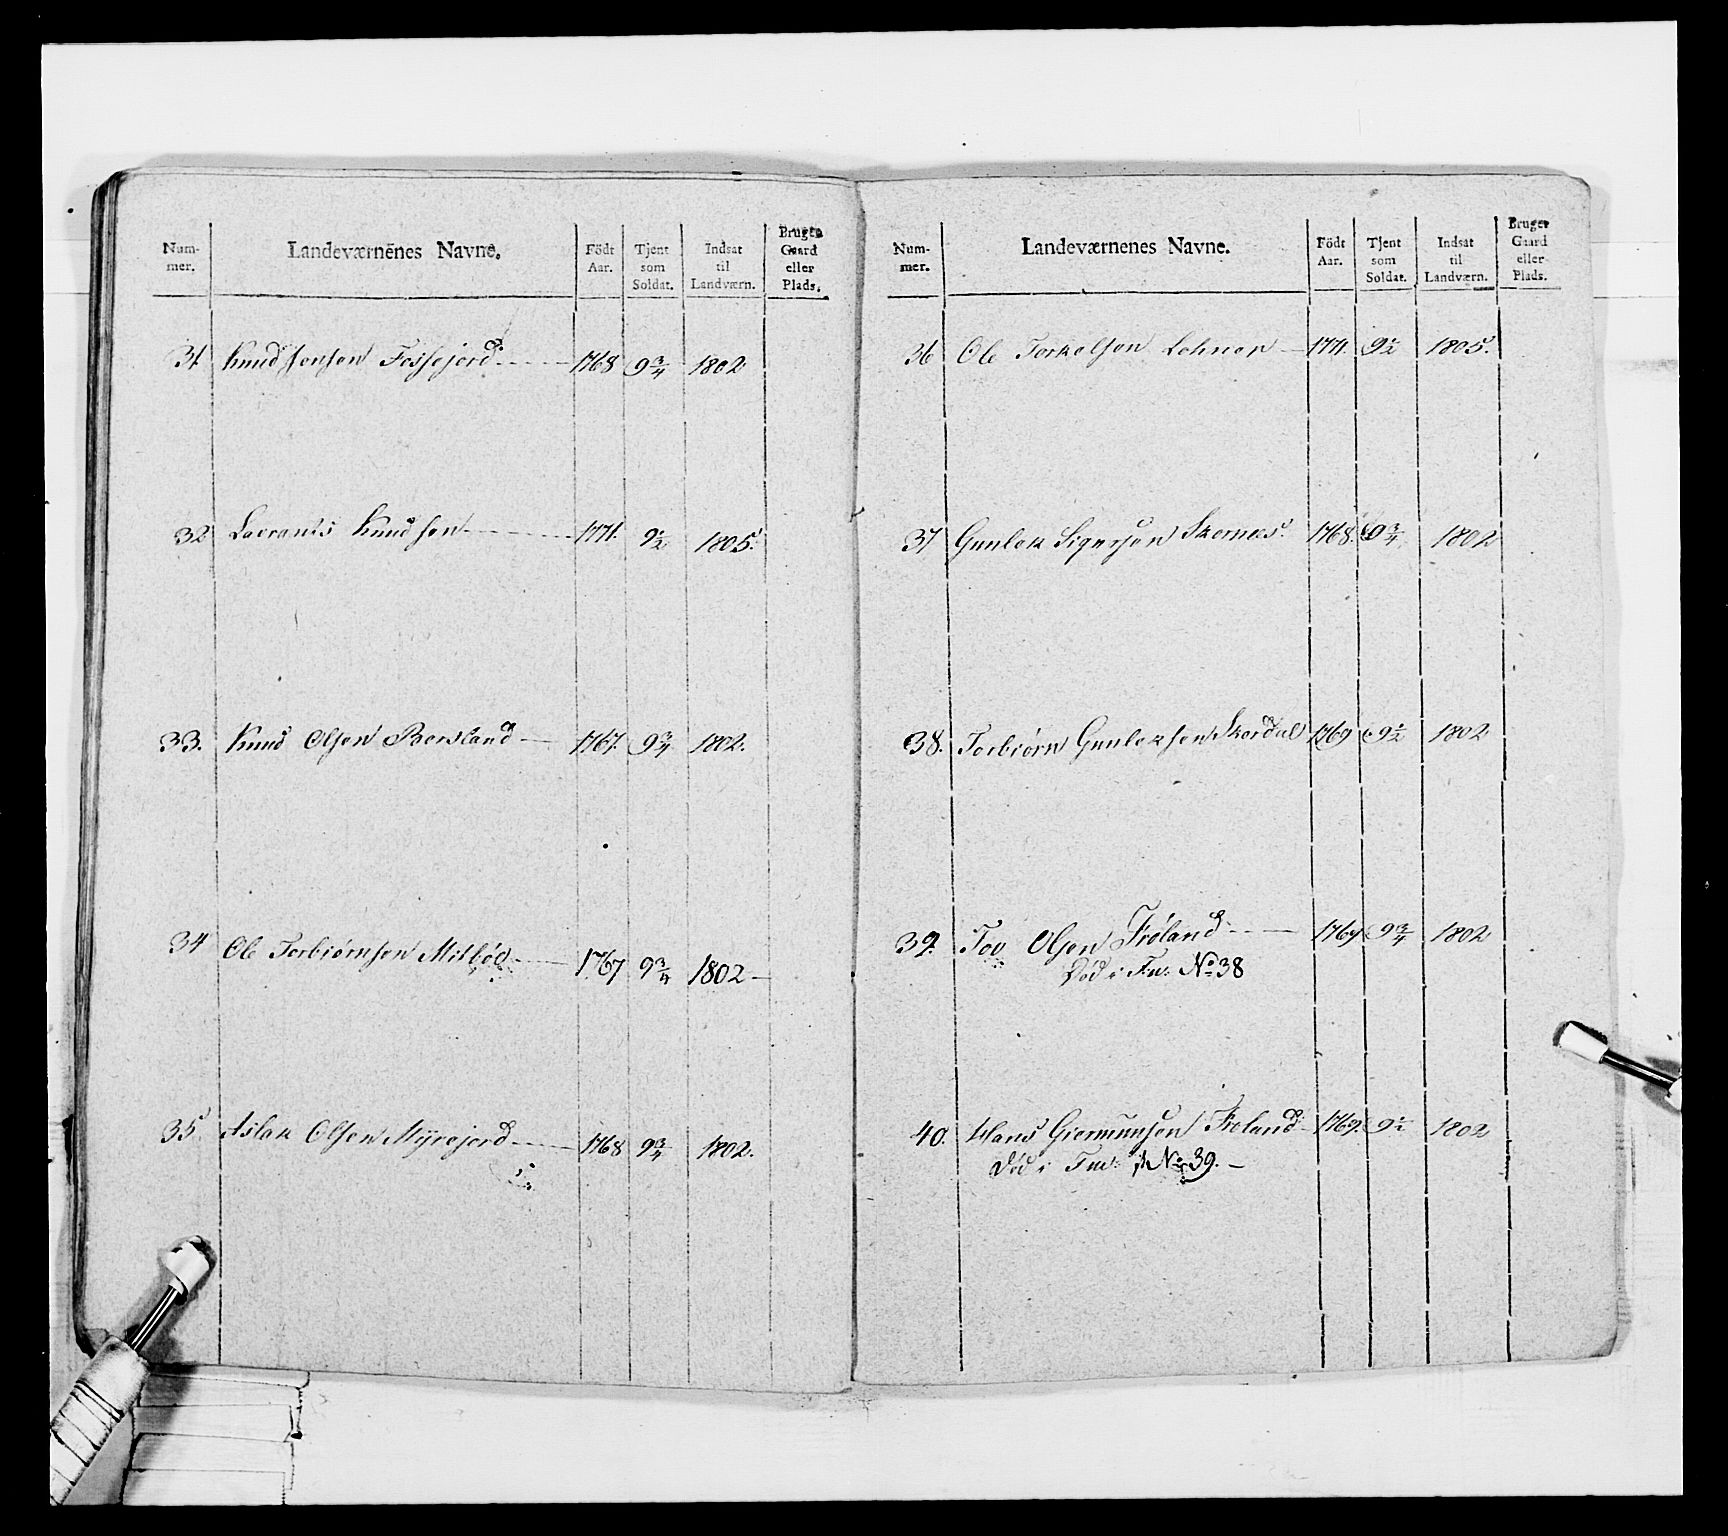 Num-
mer.
Landeværnenes Navne.
Födt
Aar.
Tjent
som
Soldat.
Indsat
til
Landværn.
Bruger
Gaard
eller
Plads.
31 Knud Jensen Fossejord 1768 9 3/4 1802
32 Laerants Knudsen 1771. 9 1/2 1805.
33. Knud Olsen Bersland 1767. 9 3/4 1802.
34 Ole Torbiørnsen Mitbød 1767 9 3/4 1802
35. Aslak Olsen Myrejord 1768 9 3/4 1802.
Num-
mer.
Landeværnenes Navne.
Födt
Aar.
Tjent
som
Soldat.
Indsat
til
Landværn.
Bruger
Gaard
eller
Plads.
36 Ole Torkelsen 1771. 9 1/2 1805.
37 Gunlek Sigursen Skernes. 1768. 9 3/4 1802
38. Torbiørn Gunleksen Skordal 1769 9 1/2 1802
39. Tov Olsen Frøland 1767 9 3/4 1802
Død i Fm: No 38
40. Hans Giermunsen Froland 1769. 9 1/2 1802
Død i Fm: No 39.